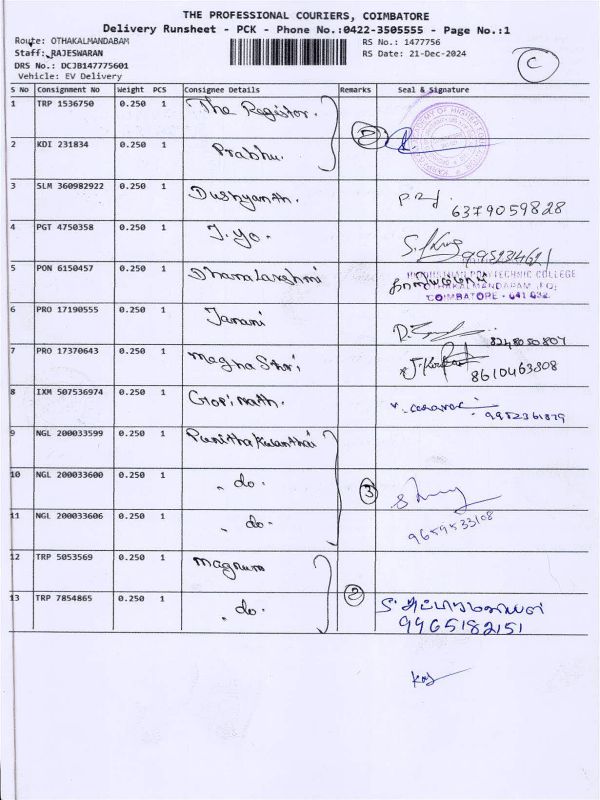 THE PROFESSIONAL COURIERS, COIMBATORE
Delivery Runsheet - PCK - Phone No.:0422-3505555 - Page No.:1
Route: OTHAKALMANDABAM RS No.: 1477756
Staff: RAJESWARAN RS Date: 21-Dec-2024
DRS No.: DCJB147775601 C
Vehicle: EV Delivery
S No Consignment No Weight PCS Consignee Details Remarks Seal & Signature
1 TRP 1536750 0.250 1 The Registor.
2 KDI 231834 0.250 1 Prabhu.
3 SLM 360982922 0.250 1 Dushyanth. 6379059828
4 PGT 4750358 0.250 1 J.yo.
5 PON 6150457 0.250 1 Dhanalakshmi POLYTECHNIC COLLEGE
OTHAKALMANDAPAM (PO)
COIMBATORE - 641 032.
6 PRO 17190555 0.250 1 Janani 8248050807
7 PRO 17370643 0.250 1 Megha Shri 8610463808
8 IXM 507536974 0.250 1 Gopinath.
9 NGL 200033599 0.250 1
10 NGL 200033600 0.250 1 " do. 3
11 NGL 200033606 0.250 1 " do. 9659533108
12 TRP 5053569 0.250 1 Magnum
13 TRP 7854865 0.250 1 " do. 2
9965182151